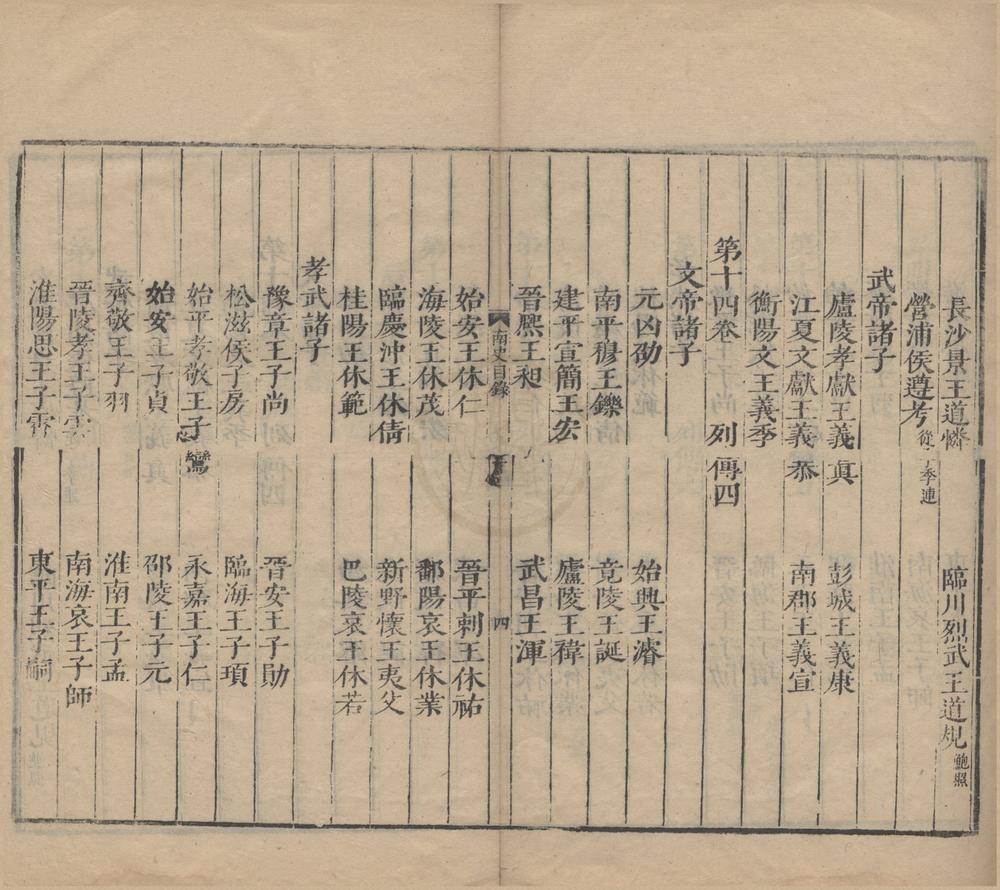 長沙景王道憐 臨川烈武王道規鮑照
營浦侯遵考從子季連
武帝諸子
廬陵孝獻王義真 彭城王義康
江夏文獻王義恭 南郡王義宣
衡陽文王義季
第十四卷 列傳四
文帝諸子
元凶劭 始興王濬
南平穆王鑠 竟陵王誕
建平宣簡王宏 廬陵王禕
晉熙王昶 武昌王渾
南史目錄 四
始安王休仁 晉平剌王休祐
海陵王休茂 鄱陽哀王休業
臨慶沖王休倩 新野懷王夷父
桂陽王休範 巴陵哀王休若
孝武諸子
豫章王子尚 晉安王子勛
松滋侯子房 臨海王子頊
始平孝敬王子鸞 永嘉王子仁
始安王子貞 邵陵王子元
齊敬王子羽 淮南王子孟
晉陵孝王子雲 南海哀王子師
淮陽思王子霄 東平王子嗣